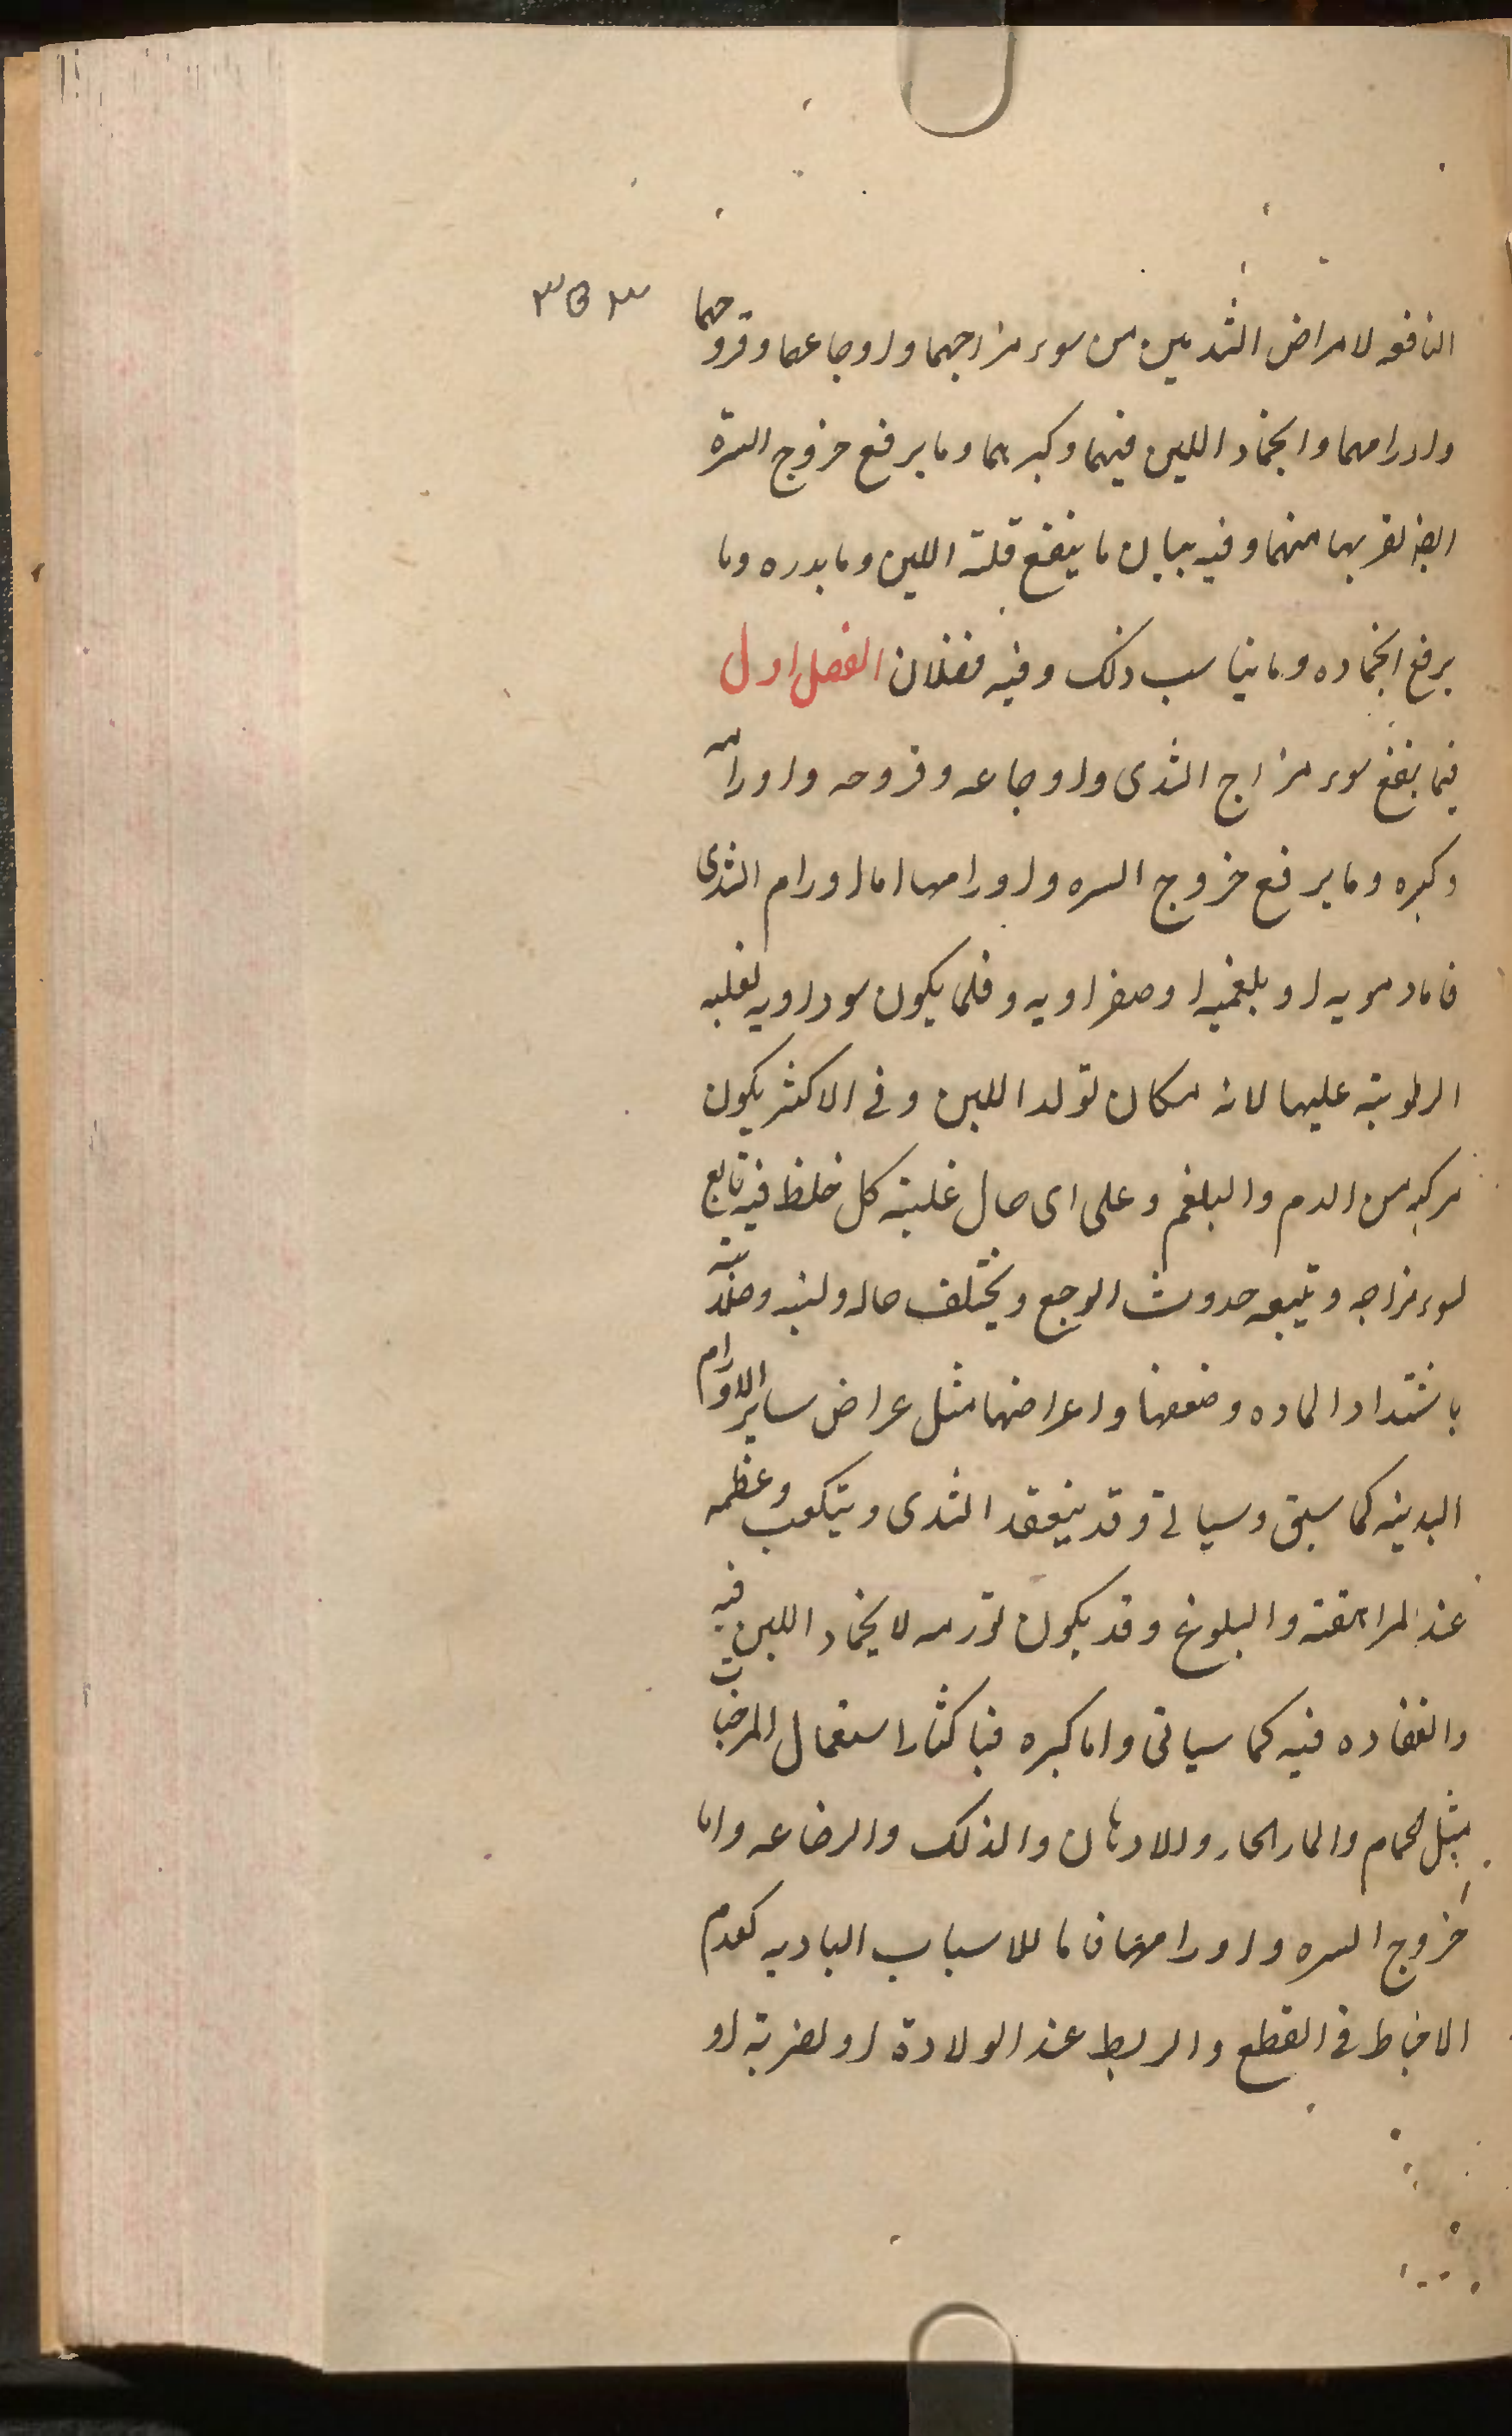 ٣٥٣
النافعه لامراض الثديين من سوء مزاجهما واوجاعهما وقروحهما
واورامهما وانجماد اللبن فيهما وكبرهما وما يرفع خروج السرة
ايضا لقربها منهما وفيه بيان ما ينفع قلة اللبن وما يدره وما
يرفع انجماده وما يناسب ذلك وفيه فصلان الفصل اول
فيما ينفع سوء مزاج الثدى واوجاعه وقروحه واورامه
وكبره وما يرفع خروج السره واورامها اما اورام الثدى
فاما دمويه او بلغميه او صفراويه وقلما يكون سوداويه لغلبه
الرطوبة عليها لانه مكان تولد اللبن وفى الاكثر يكون
مركبه من الدم والبلغم وعلى اى حال غلبة كل خلط فيه تابع
لسوء مزاجه ويتبعه حدوث الوجع ويختلف حاله ولينه وصلابته
باشتداد الماده وضعفها واعراضها مثل عراض ساير الاورام
البدنيه كما سبق وسياتى وقد ينعقد الثدى ويتكعب وعظمه
عند المراهقة والبلوغ وقد يكون تورمه لانجماد اللبن فيه
وانعقاده فيه كما سياتى واما كبره فباكثار استعمال المرخيات
مثل الحمام والماء الحار والادهان والدلك والرضاعه واما
خروج السره واورامها فاما للاسباب الباديه كعدم
الاحتياط فى القطع والربط عند الولادة او لضربة او